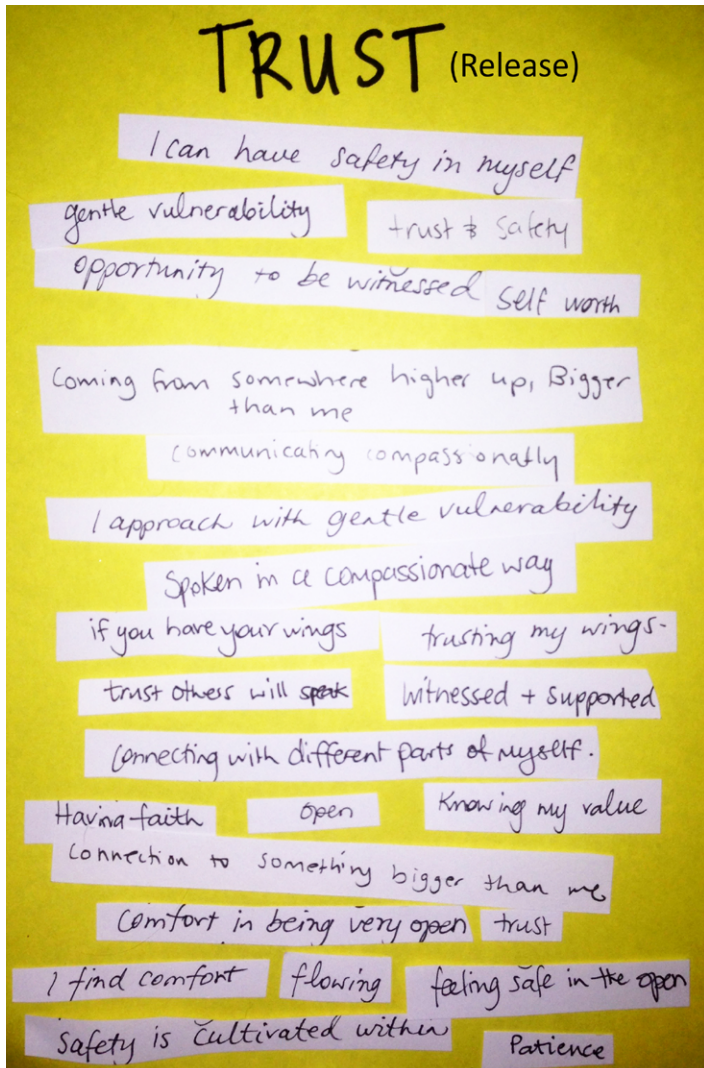 TRUST (Release)
I can have safety in myself
gentle vulnerability
trust & safety
opportunity to be witnessed
self worth
Coming from somewhere higher up, Bigger
than me
communicating compassionatly
I approach with gentle vulnerability
Spoken in a compassionate way
if you have your wings
trusting my wings-
trust others will speak
Witnessed + supported
Connecting with different parts of myself.
Having faith
open
Knowing my value
Connection to something bigger than me
Comfort in being very open
trust
I find comfort
flowing
feeling safe in the open
Safety is cultivated within
Patience